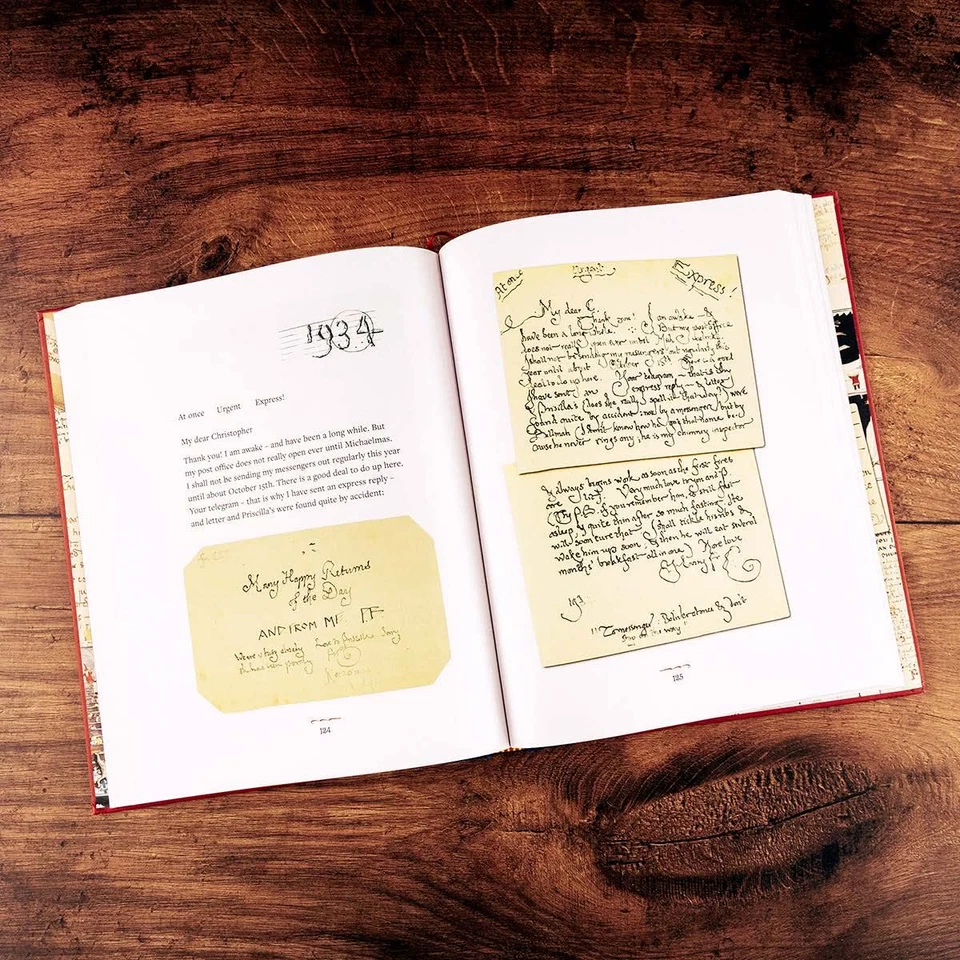 1934
At once Urgent Express!
My dear Christopher
Thank you! I am awake – and have been a long while. But
my post office does not really open ever until Michaelmas.
I shall not be sending my messengers out regularly this year
until about October 15th. There is a good deal to do up here.
Your telegram – that is why I have sent an express reply –
and letter and Priscilla's were found quite by accident:
Many Happy Returns
of the Day
AND FROM ME
124
At once Urgent Express!
My dear C.
Thank you! I am awake &
have been a long while. But my post office
does not really open ever until Michaelmas.
I shall not be sending my messengers out regularly this
year until about October 15th. There is a good
deal to do up here. Your telegram – that is why
I have sent an express reply – & letter
& Priscilla's (does she really spell it that way?) were
found quite by accident: not by a messenger but by
Bellman (I don't know how he got that name, because
he never rings any; he is my chimney inspector
& always begins work as soon as the first fires
are lit). Very much love to you and P.
(The P.B. if you remember him, is still fast
asleep, & quite thin after so much fasting. He
will soon cure that. I shall tickle his ribs &
wake him up soon; & then he will eat several
months' breakfast all in one.) More love
To messenger: Deliver at once & don't
stop on the way
125